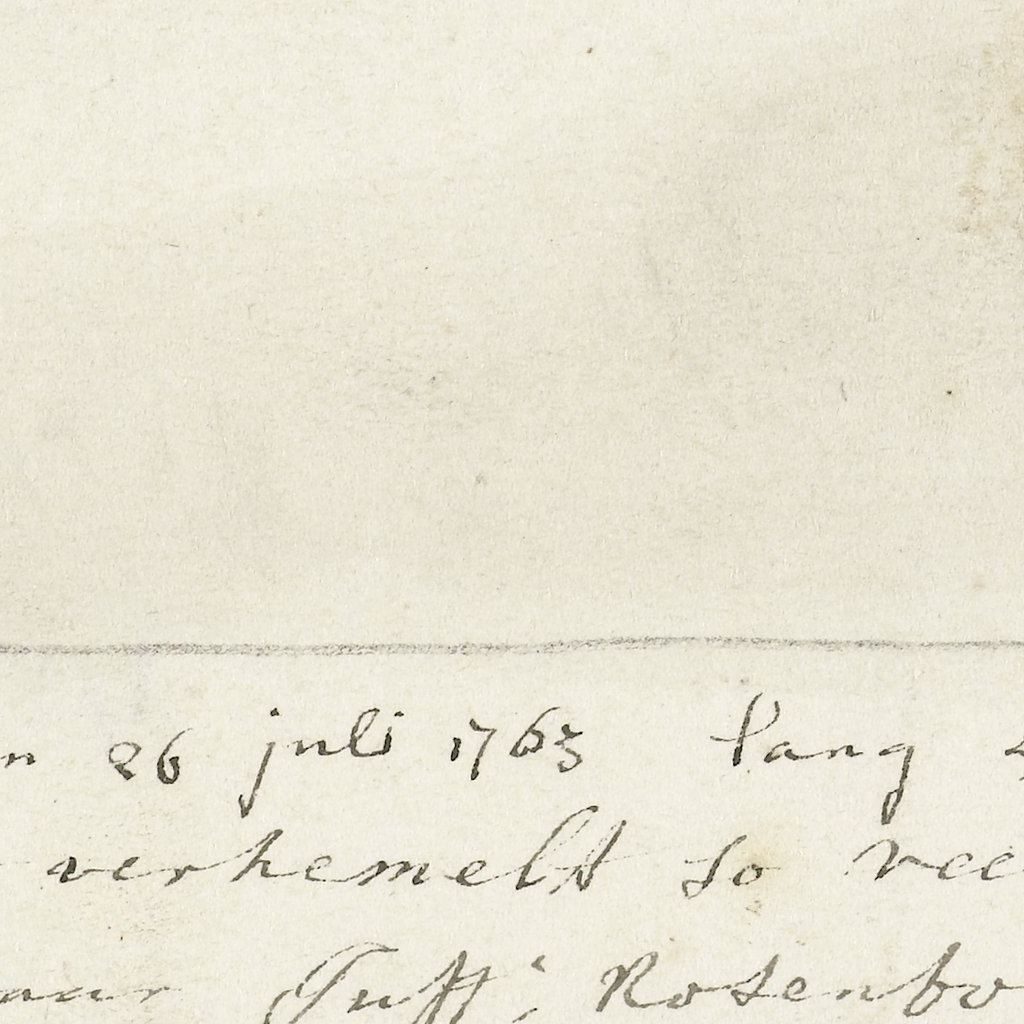 n 26 juli 1763 lang
verhemelt so vee
Juff: Rosenbo